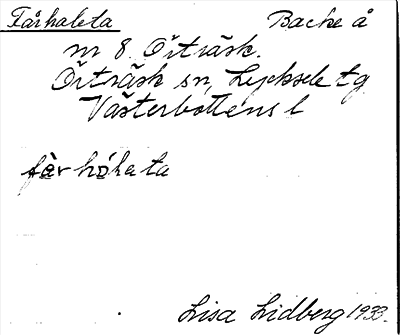 Fårhaleta Backe å
nr 8. Örträsk.
Örträsk sn, Lycksele tg
Västerbottens l
fårhòleta
Lisa Lidberg 1933.